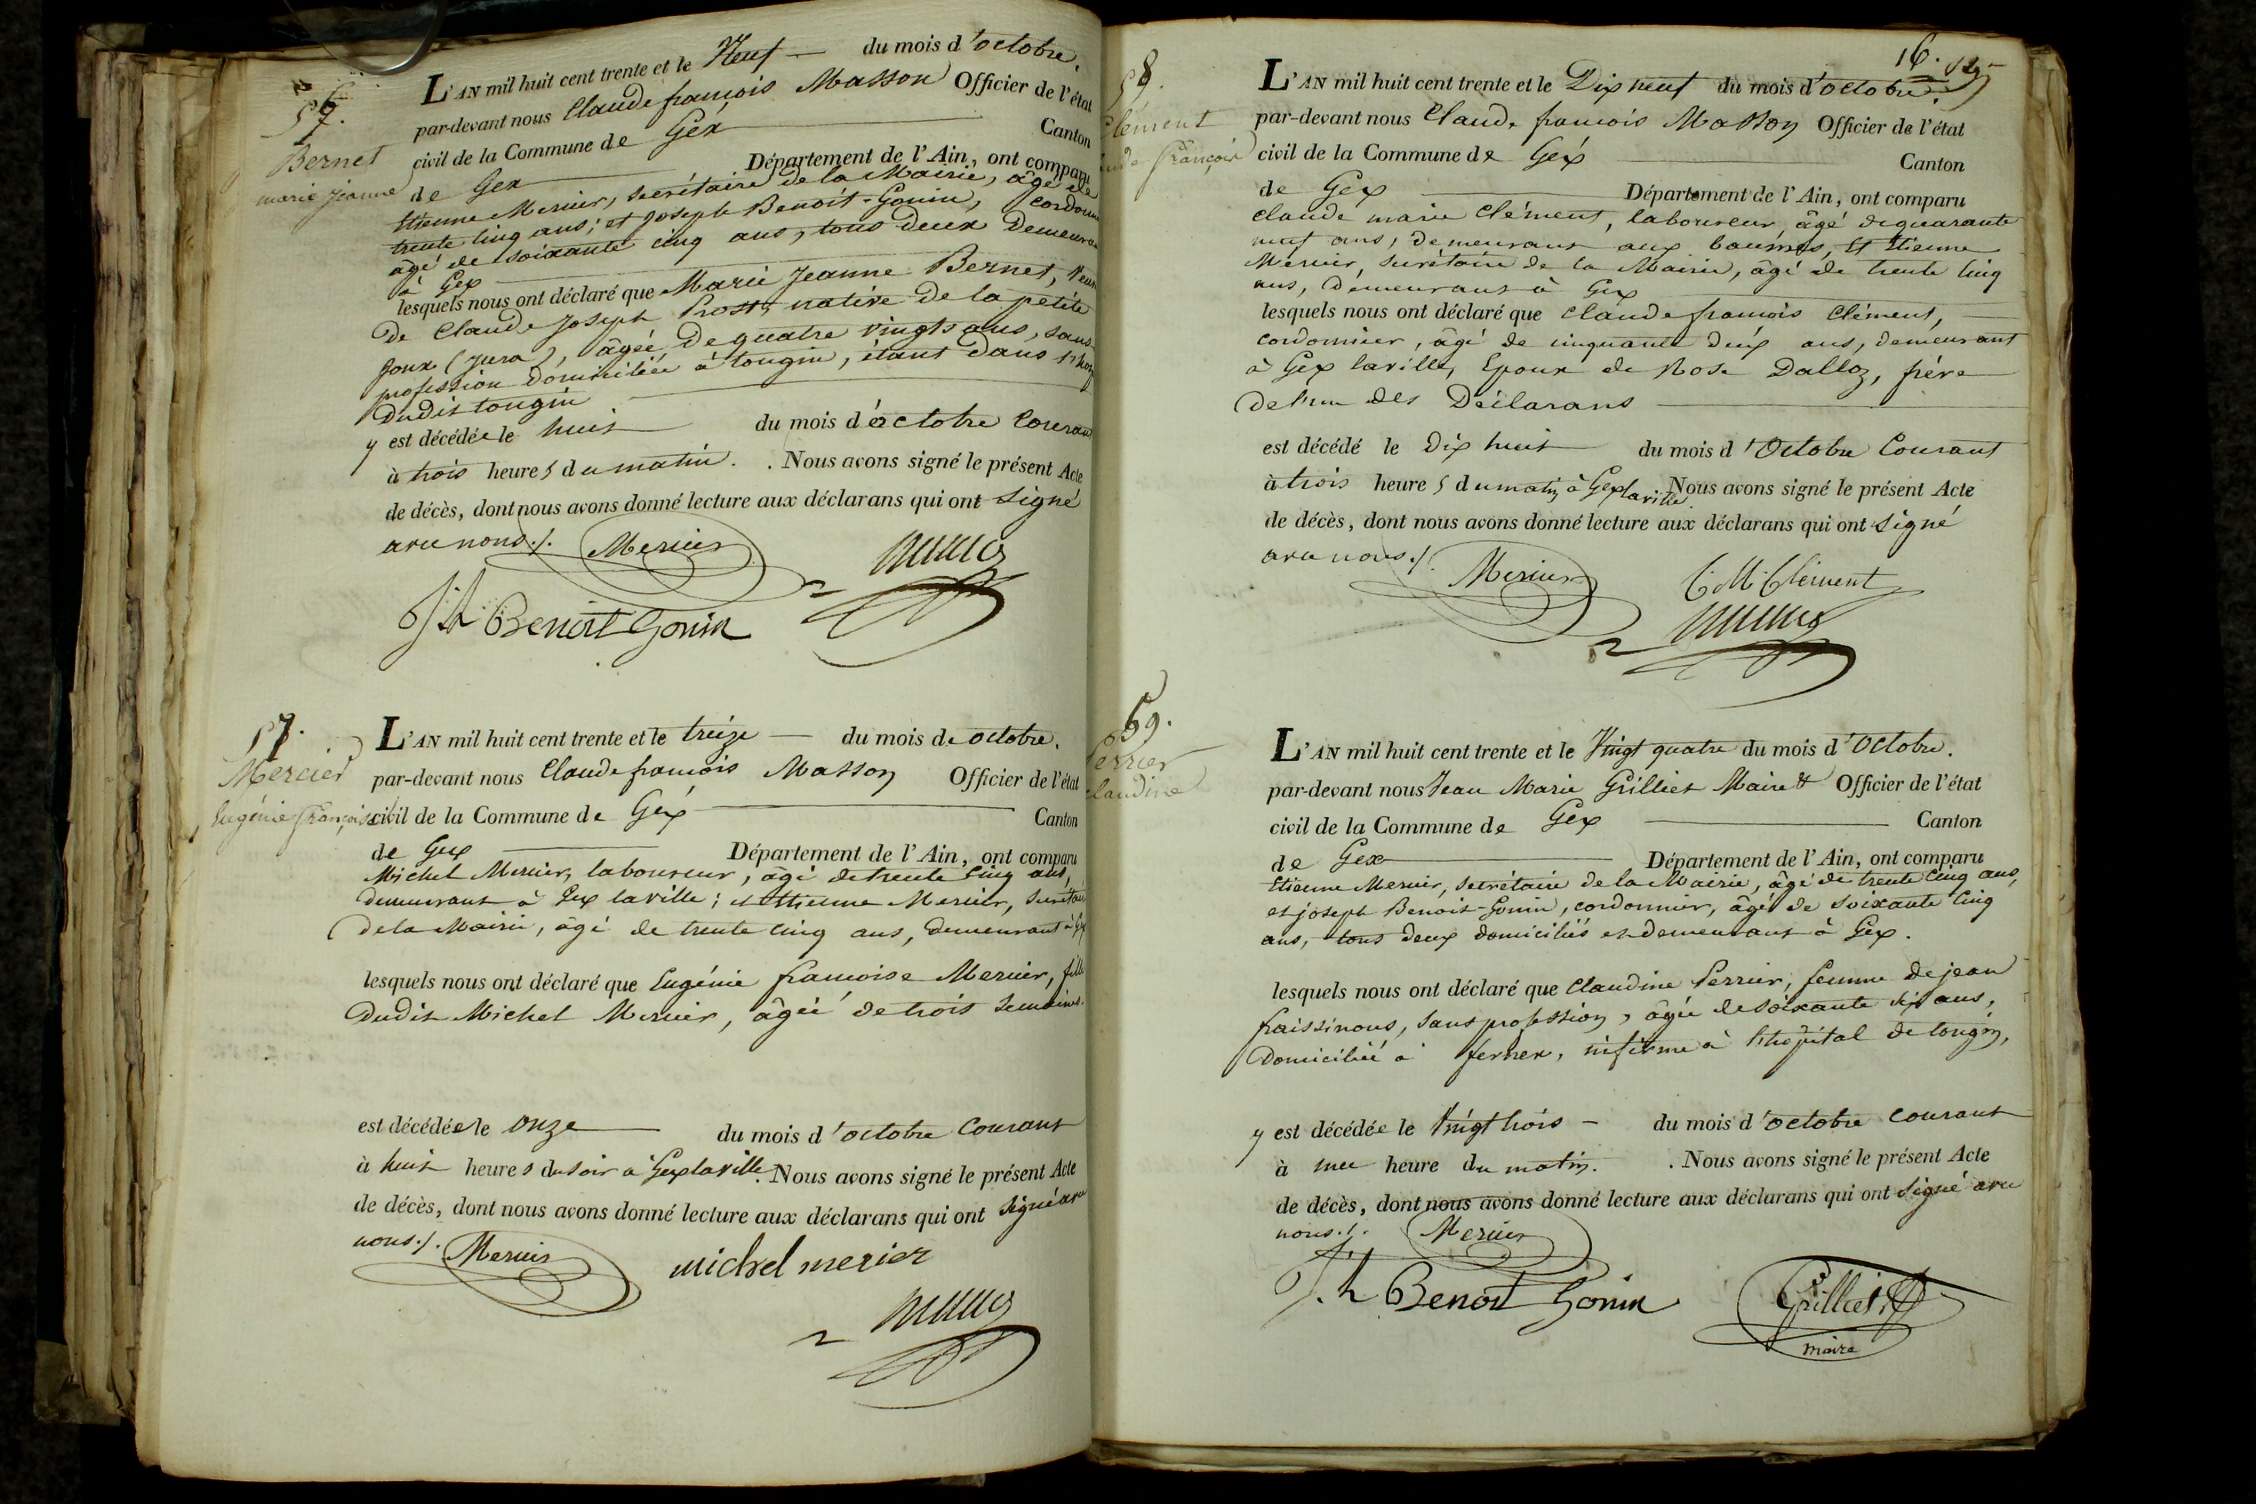 56.
Bernet
marie jeanne
L'AN mil huit cent trente et le Neuf — du mois d'octobre,
par-devant nous Claude françois Masson Officier de l'état
civil de la Commune de Gex Canton
de Gex Département de l'Ain, ont comparu
Etienne Mercier, secrétaire de la Mairie, âgé de
trente cinq ans; et Joseph Benoit-Gonin, cordonn
âgé de soixante cinq ans, tous deux Demeuran
à Gex
lesquels nous ont déclaré que Marie Jeanne Bernet, Veuve
de Claude Joseph Prost, native de la petite
Joux (Jura), âgée de quatre vingts ans, sans
profession domiciliée à tougin, étant dans l'hop
Dudit tougin
y est décédée le huit du mois d'octobre Couran
à trois heures du matin. . Nous avons signé le présent Acte
de décès, dont nous avons donné lecture aux déclarans qui ont signé
avec nous./. Mercier
Jh Benoit Gonin
57.
Mercier
Eugénie françoise
L'AN mil huit cent trente et le treize — du mois de octobre.
par-devant nous Claude francois Masson Officier de l'état
civil de la Commune de Gex Canton
de Gex Département de l'Ain, ont comparu
Michel Mercier, laboureur, âgé de trente cinq ans,
demeurant à Gex la ville; et Etienne Mercier, Secrétai
De la Mairie, âgé de trente cinq ans, demeurant à Gex
lesquels nous ont déclaré que Eugénie francoise Mercier, fille
Dudit Michel Mercier, âgée de trois semaines.
est décédée le onze du mois d'octobre Courant
à huit heures du soir à Gex la ville. Nous avons signé le présent Acte
de décès, dont nous avons donné lecture aux déclarans qui ont signé avec
nous./. Mercier michel merier
16.
58.
Clément
françois
L'AN mil huit cent trente et le Dix neuf du mois d'octobre.
par-devant nous Claude francois Masson Officier de l'état
civil de la Commune de Gex Canton
de Gex Département de l'Ain, ont comparu
Claude marie Clément, laboureur, âgé de quarante
neuf ans, demeurant aux baumes, Et Etienne
Mercier, secrétaire de la Mairie, âgé de trente cinq
ans, Demeurant à Gex
lesquels nous ont déclaré que Claude francois Clément, —
cordonnier, âgé de cinquante deux ans, demeurant
à Gex la ville, Epoux de Rose Dalloz, frère
De l'un des Déclarans
est décédé le Dix huit du mois d'Octobre Courant
à trois heures du matin à Gex la ville. Nous avons signé le présent Acte
de décès, dont nous avons donné lecture aux déclarans qui ont signé
avec nous./. Mercier C. M. Clément
59.
Perrier
claudine
L'AN mil huit cent trente et le Vingt quatre du mois d'Octobre.
par-devant nous Jean Marie Grilliet Maire & Officier de l'état
civil de la Commune de Gex Canton
de Gex Département de l'Ain, ont comparu
Etienne Mercier, secrétaire de la Mairie, âgé de trente cinq ans,
et joseph Benoit-Gonin, cordonnier, âgé de soixante cinq
ans, tous deux domiciliés et demeurant à Gex.
lesquels nous ont déclaré que Claudine Perrier, femme de jean
fraissinous, sans profession, âgée de soixante dix ans,
Domiciliée à ferney, infirme à l'hôpital de tougin,
y est décédée le Vingt trois — du mois d'octobre courant
à une heure du matin. . Nous avons signé le présent Acte
de décès, dont nous avons donné lecture aux déclarans qui ont signé avec
nous./. Mercier
J.h Benoit Gonin Grilliet
maire